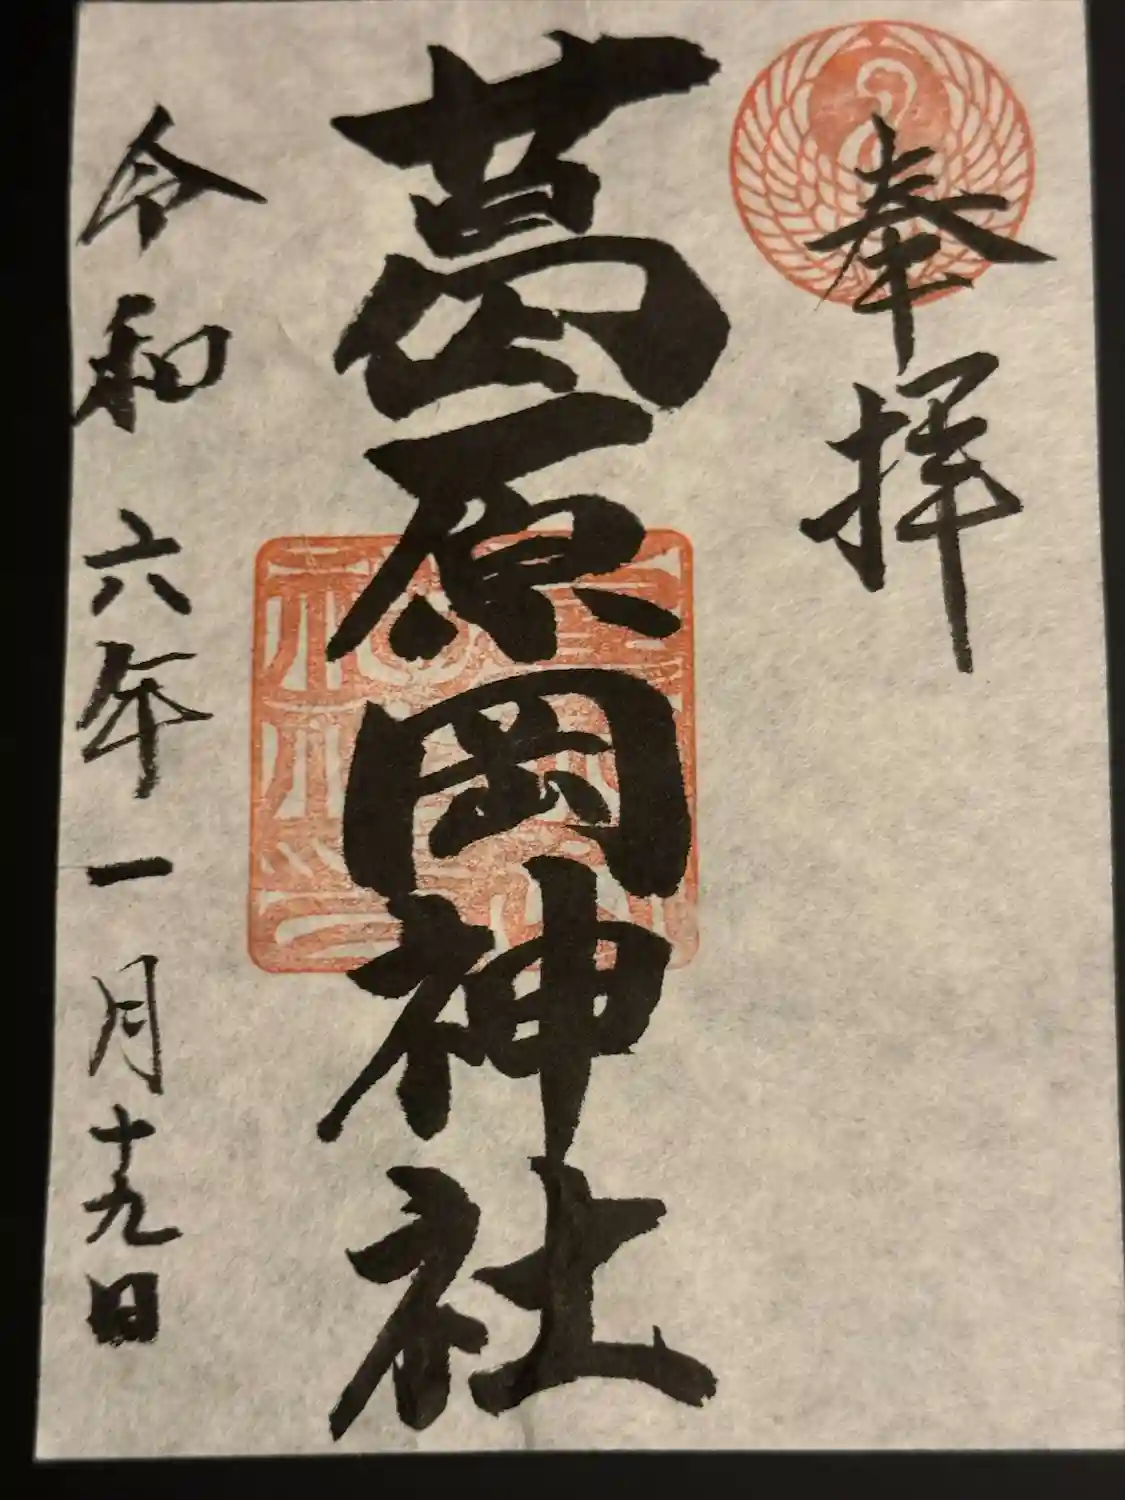 奉拝
葛原岡神社
令和六年一月十九日